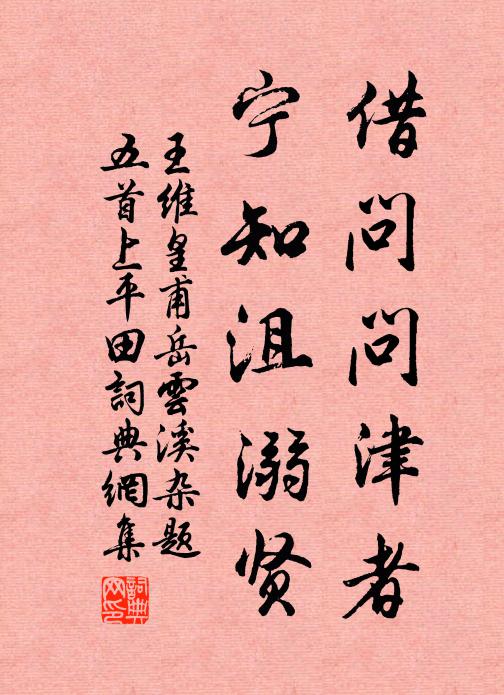 借问问津者
宁知沮溺贤
王维皇甫岳雲溪杂题
五首上平田詞典網集
詞典
网印